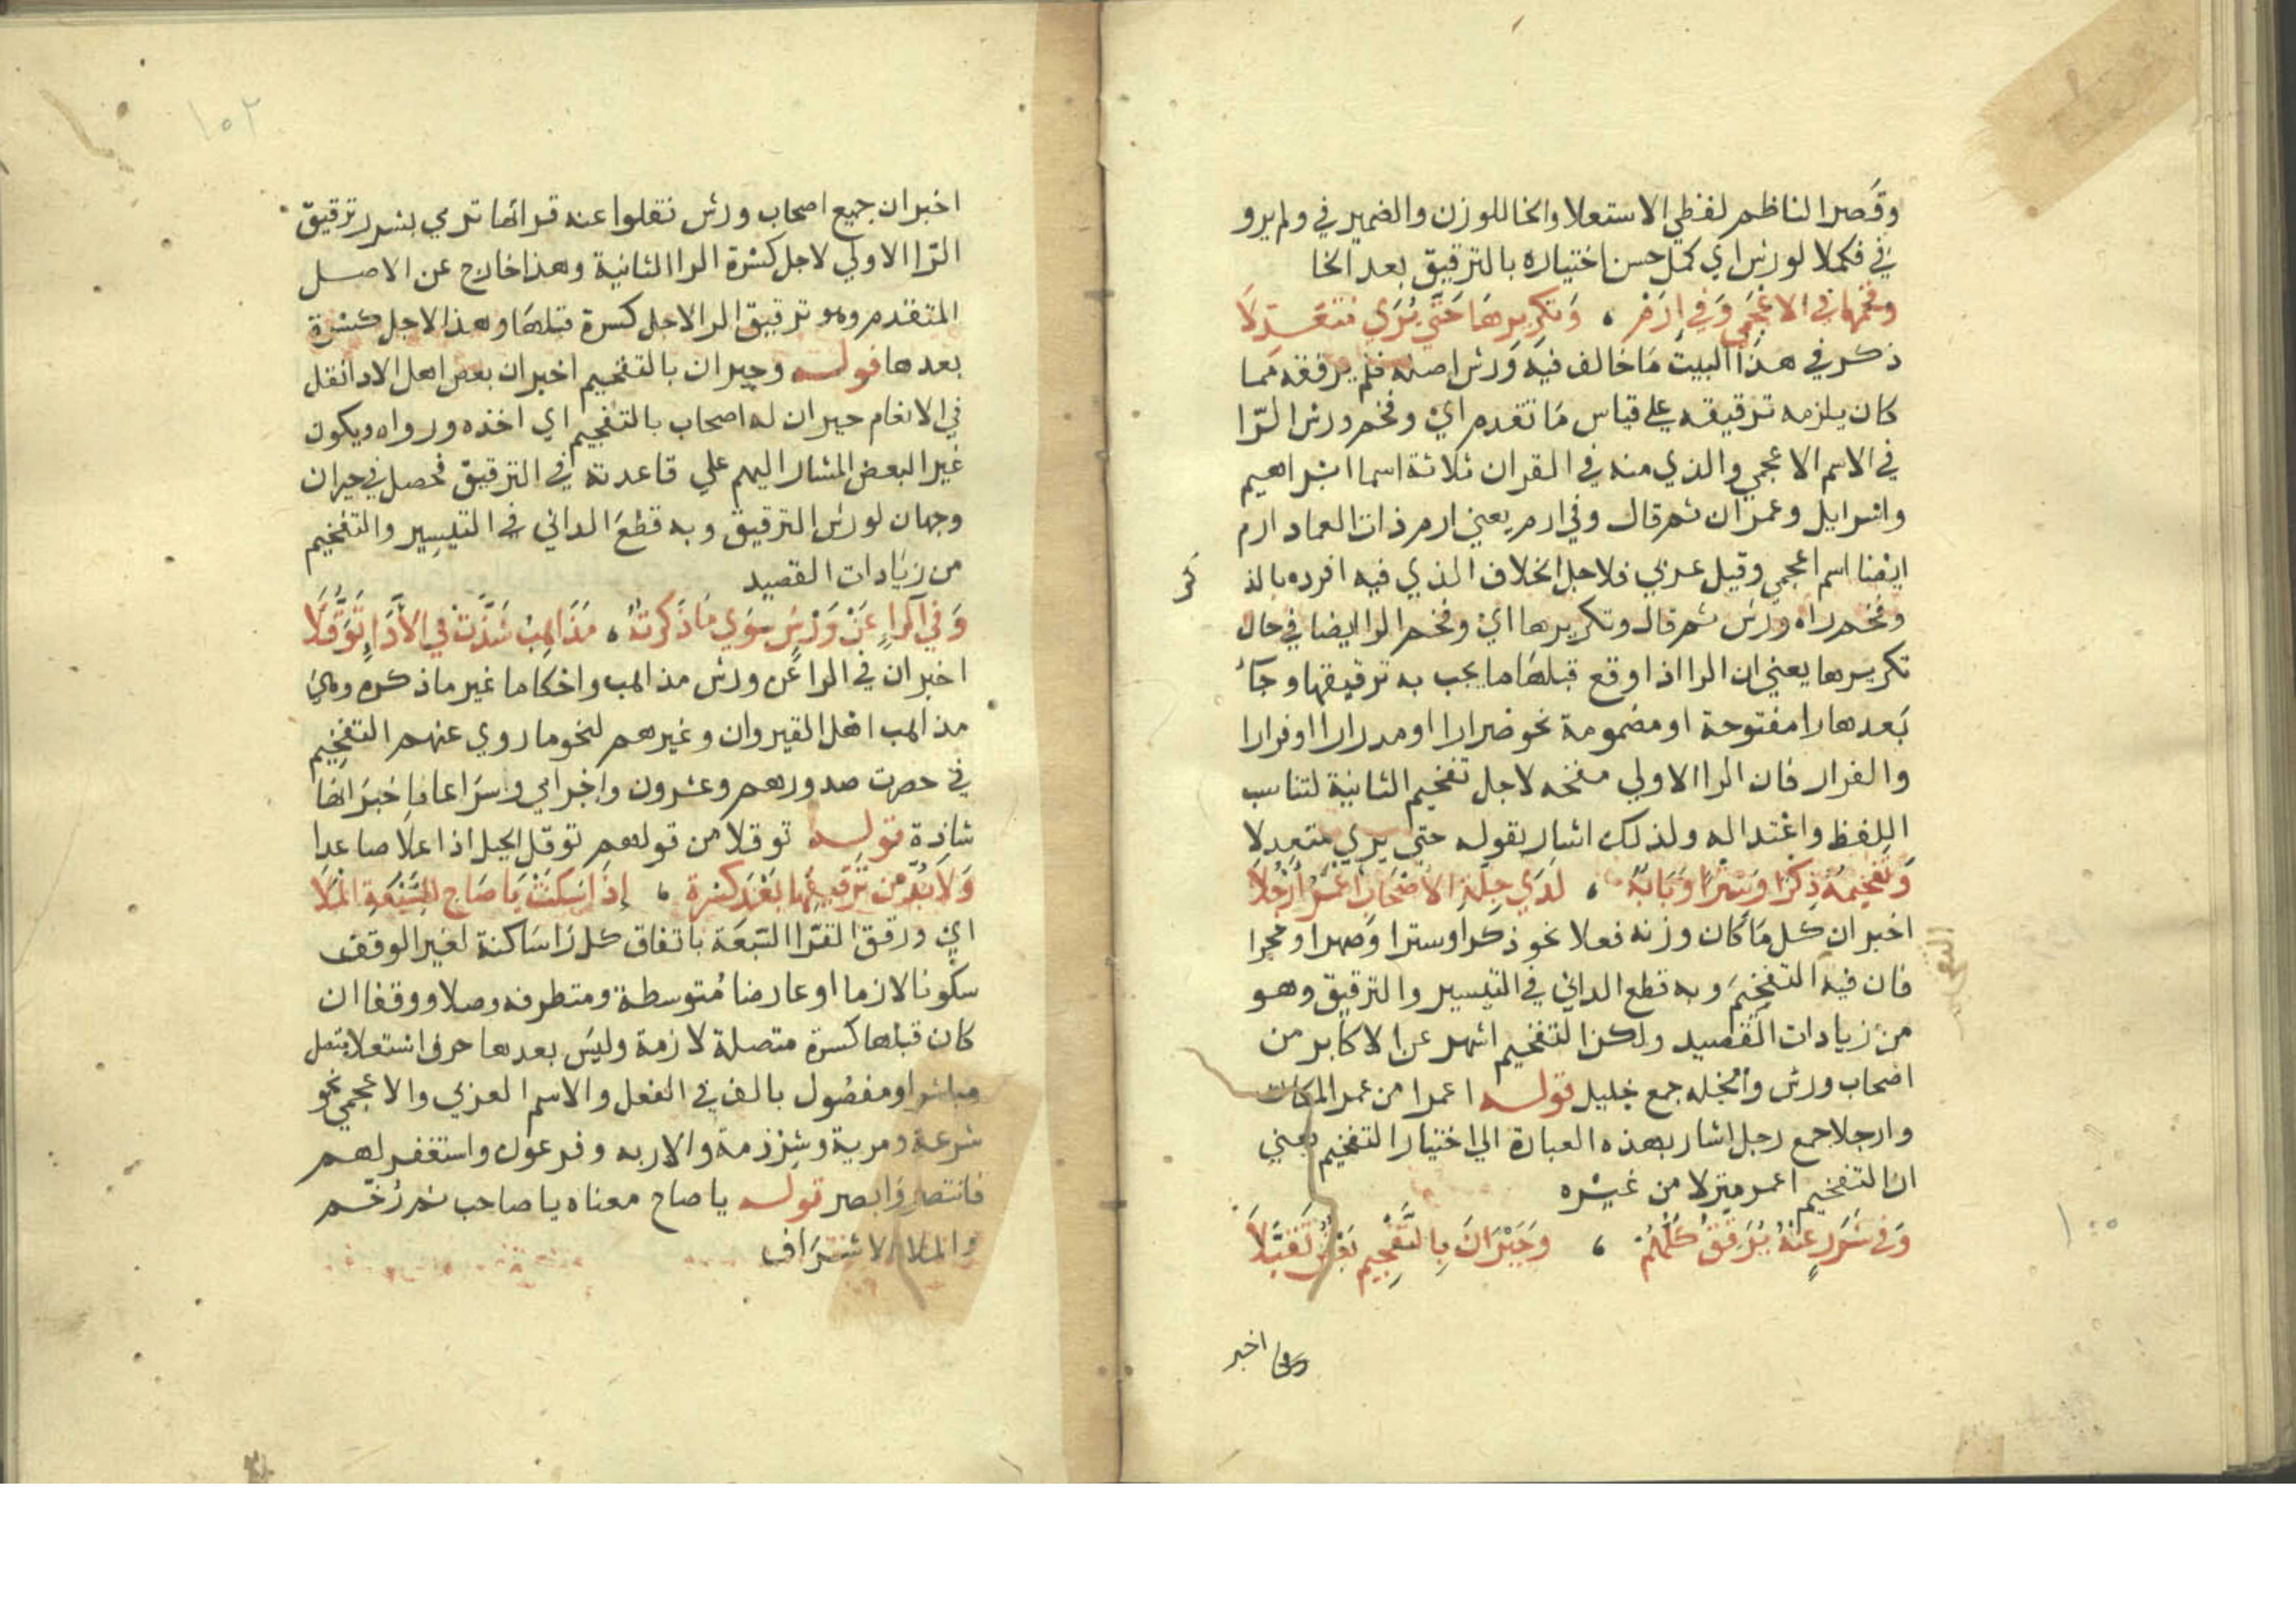 وقصر الناظم لفظي الاستعلا والخا للوزن والضمير في ولم يرو
في فكملا لورش اي كمل حسن اختياره بالترقيق بعد الخا
وفخمها في الاعجمي وفي ارم ، وتكريرها حتى يرى متعدلا
ذكر في هذا البيت ما خالف فيه ورش اصله فلم يرققه مما
كان يلزمه ترقيقه على قياس ما تقدم اي وفخم ورش الرّا
في الاسم الاعجمي والذي منه في القران ثلاثة اسما ابراهيم
واسرايل وعمران ثم قال وفي ارم يعني ارم ذات العماد ارم
ايضا اسم اعجمي وقيل عربي فلاجل الخلاف الذي فيه افرده بالذ
كر
وفخم راه ورش ثم قال وتكريرها اي وفخم الرا ايضا في حال
تكريرها يعني ان الرا اذا وقع قبلها ما يجب به ترقيقها وجاء
بعدها را مفتوحة او مضمومة نحو ضرارا او مدرارا او فرارا
والفرار فان الرا الاولي مفخمه لاجل تفخيم الثانية لتناسب
اللفظ واعتداله ولذلك اشار بقوله حتي يري متعدلا
وتفخيمه ذكرا وسترا وبابه ، لدي جلة الاصحاب اعمر ارحلا
اخبر ان كل ما كان وزنه فعلا نحو ذكرا وسترا وصهرا وحجرا
فان فيه التفخيم وبه قطع الداني في التيسير والترقيق وهو
من زيادات القصيد ولكن التفخيم اشهر عن الاكابر من
اصحاب ورش والجله جمع جليل قوله اعمرا من عمر المكان
وارجلا جمع رجل اشار بهذه العبارة الي اختيار التفخيم يعني
ان التفخيم اعمر منزلا من غيره
وفي شرر عنه يرقق كلهم ، وحيران بالتفخيم بعض تقبلا
اخبر
١٠٢
اخبر ان جميع اصحاب ورش نقلوا عنه قراتها ترمي بشرر ترقيق
الرّا الاولي لاجل كسرة الرا الثانية وهذا خارج عن الاصل
المتقدم وهو ترقيق الرا لاجل كسرة قبلها وهذا لاجل كسرة
بعدها قوله وحيران بالتفخيم اخبر ان بعض اهل الادا نقل
في الانعام حيران له اصحاب بالتفخيم اي اخذه ورواه ويكون
غير البعض المشار اليهم علي قاعدته في الترقيق فحصل في حيران
وجهان لورش الترقيق وبه قطع الداني في التيسير والتفخيم
من زيادات القصيد
وفي الراء عن ورش سوي ما ذكرته ، مذاهب شذت في الأداء توقلا
اخبر ان في الرا عن ورش مذاهب واحكاما غير ما ذكره وهي
مذاهب اهل القيروان وغيرهم لنحو ما روي عنهم التفخيم
في حصرت صدورهم وعشرون واجرامي وسراعا فاخبر انها
شاذة قوله توقلا من قولهم توقل الجبل اذا علا صاعدا
ولا بد من ترقيقها بعد كسرة ، إذا سكنت يا صاح للسبعة الملا
اي ورقق القرا السبعة باتفاق كل را ساكنة لغير الوقف
سكونا لازما او عارضا متوسطة ومتطرفه وصلا ووقفا ان
كان قبلها كسرة متصلة لازمة وليس بعدها حرف استعلا متصل
مباشر او مفصول بالف في الفعل والاسم العربي والاعجمي نحو
شرعة ومرية وشرذمة والاربه وفرعون واستغفر لهم
فانتصر وابصر قوله يا صاح معناه يا صاحب ثم رخم
والملا الاشراف